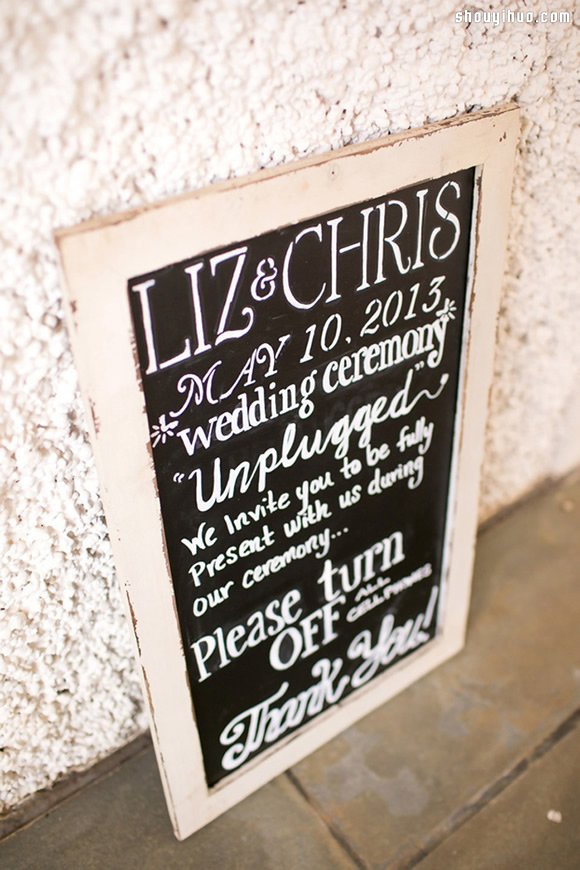 shouyihuo.com
LIZ & CHRIS
MAY 10, 2013
wedding ceremony
"Unplugged"
We Invite you to be fully
Present with us during
our ceremony...
Please turn
OFF ALL
CELLPHONES
Thank You!